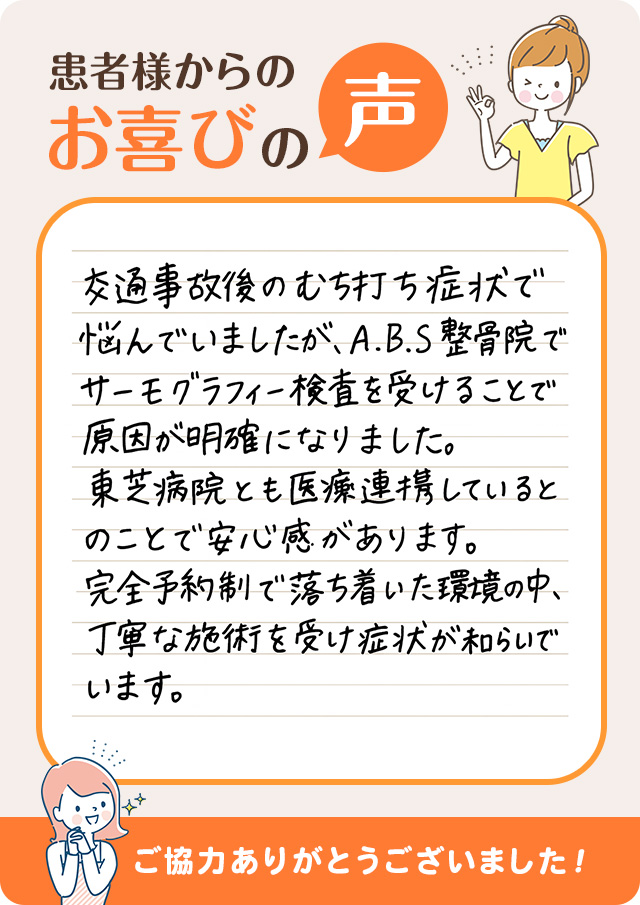 患者様からの
お喜びの
声
交通事故後のむち打ち症状で
悩んでいましたが、A.B.S整骨院で
サーモグラフィー検査を受けることで
原因が明確になりました。
東芝病院とも医療連携していると
のことで安心感があります。
完全予約制で落ち着いた環境の中、
丁寧な施術を受け症状が和らいで
います。
ご協力ありがとうございました!